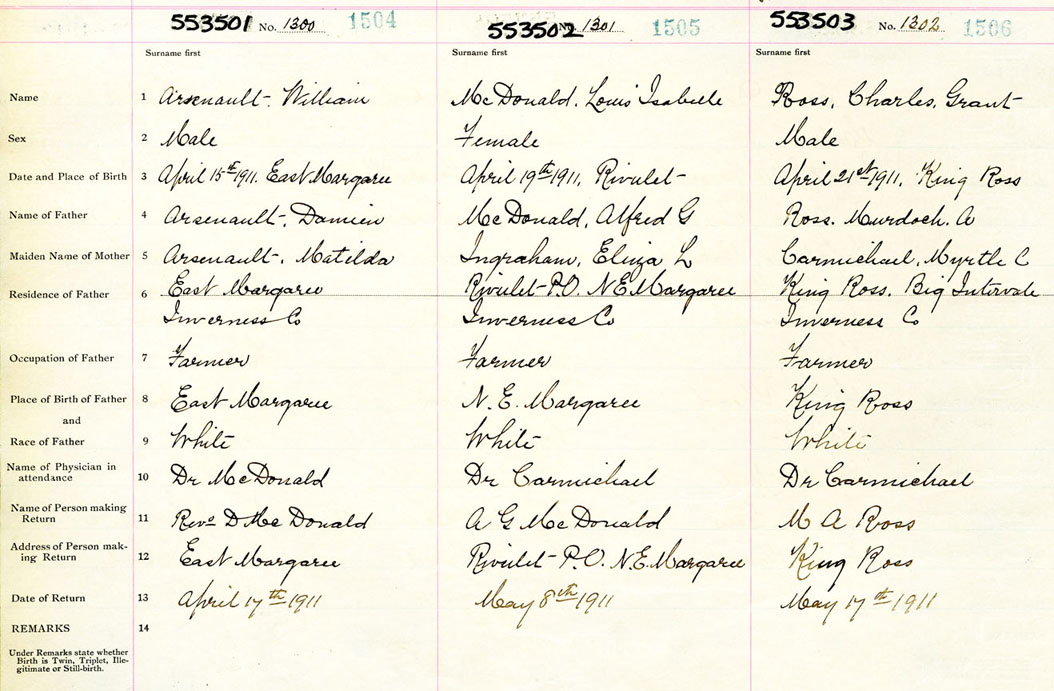 553501 No. 1300 1504 553502 No. 1301 1505 553503 No. 1302 1506
Surname first Surname first Surname first
Name 1 Arsenault, William McDonald, Louis Isabelle Ross, Charles, Grant
Sex 2 Male Female Male
Date and Place of Birth 3 April 15th 1911. East Margaree April 19th 1911, Rivulet April 21st 1911, King Ross
Name of Father 4 Arsenault, Damien McDonald, Alfred G Ross. Murdoch. A
Maiden Name of Mother 5 Arsenault, Matilda Ingraham, Eliza L Carmichael, Myrtle C
Residence of Father 6 East Margaree Rivulet P.O. N E Margaree King Ross. Big Intervale
Inverness Co Inverness Co Inverness Co
Occupation of Father 7 Farmer Farmer Farmer
Place of Birth of Father 8 East Margaree N. E. Margaree King Ross
and
Race of Father 9 White White White
Name of Physician in
attendance 10 Dr McDonald Dr Carmichael Dr Carmichael
Name of Person making
Return 11 Revd D McDonald A G McDonald M A Ross
Address of Person mak-
ing Return 12 East Margaree Rivulet P.O. N.E. Margaree King Ross
Date of Return 13 April 17th 1911 May 8th 1911 May 17th 1911
REMARKS 14
Under Remarks state whether
Birth is Twin, Triplet, Ille-
gitimate or Still-birth.